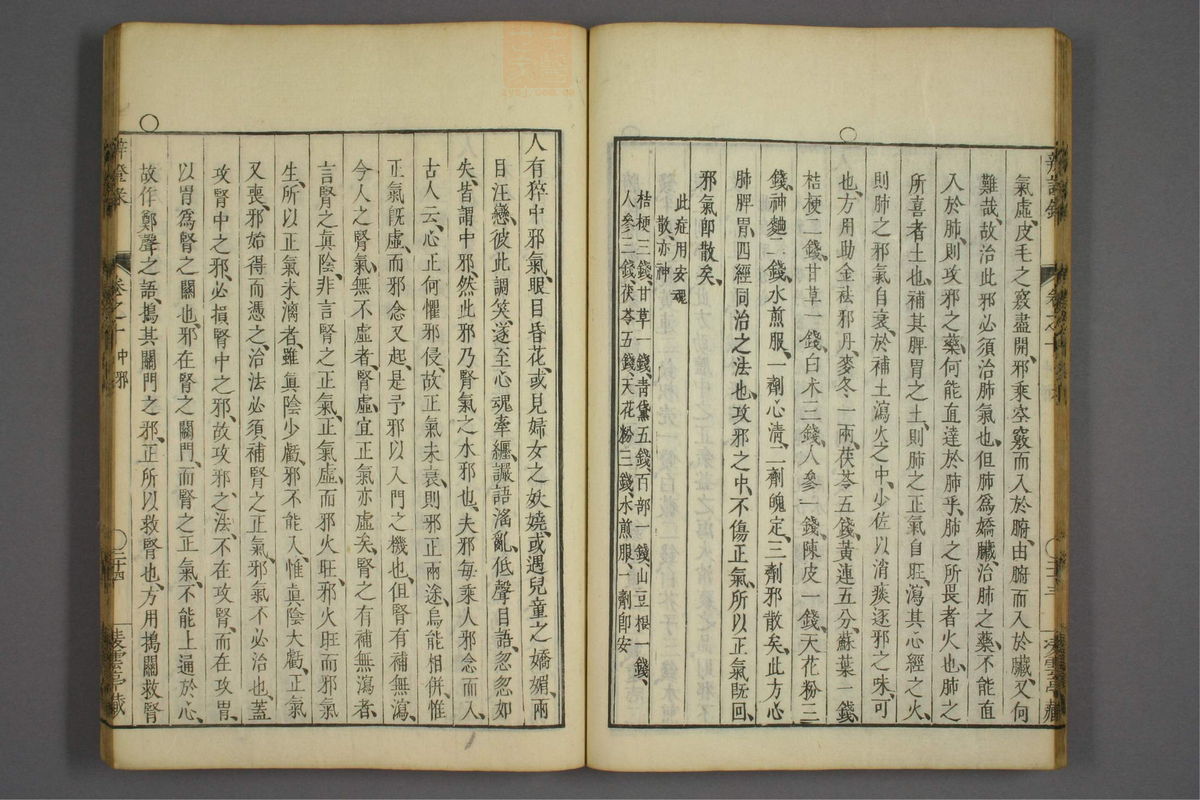 氣虛、皮毛之竅盡開、邪乘空竅而入於腑、由腑而入於臟、又何
難哉、故治此邪必須治肺氣也、但肺爲嬌臟、治肺之藥、不能直
入於肺、則攻邪之藥、何能直達於肺乎、肺之所畏者火也、肺之
所喜者土也、補其脾胃之土、則肺之正氣自旺、瀉其心經之火、
則肺之邪氣自衰、於補土瀉火之中、少佐以消痰逐邪之味、可
也、方用助金祛邪丹、麥冬一兩、茯苓五錢、黃連五分、蘇葉一錢、
桔梗二錢、甘草一錢、白术三錢、人參一錢、陳皮一錢、天花粉三
錢、神麯二錢、水煎服、一劑心清、二劑魄定、三劑邪散矣、此方心
肺脾胃、四經同治之法也、攻邪之中、不傷正氣、所以正氣旣回、
邪氣卽散矣、
此症用安魂
散亦神
桔梗三錢、甘草一錢、靑黛五錢、百部一錢、山豆根一錢、
人參三錢、茯苓五錢、天花粉三錢、水煎服一劑卽安
人有猝中邪氣、眼目昏花、或見婦女之妖嬈、或遇兒童之嬌媚、兩
目注戀、彼此調笑、遂至心魂牽纏、讝語淫亂、低聲自語、忽忽如
失、皆謂中邪、然此邪乃腎氣之水邪也、夫邪每乘人邪念而入、
古人云、心正何懼邪侵、故正氣未衰、則邪正兩途、烏能相併、惟
正氣旣虛、而邪念又起、是予邪以入門之機也、但腎有補無瀉、
今人之腎氣、無不虛者、腎虛、宜正氣亦虛矣、腎之有補無瀉者、
言腎之眞陰、非言腎之正氣、正氣虛而邪火旺、邪火旺而邪氣
生、所以正氣未漓者、雖眞陰少虧、邪不能入、惟眞陰大虧、正氣
又喪、邪始得而憑之、治法必須補腎之正氣、邪氣不必治也、蓋
攻腎中之邪、必損腎中之邪、故攻邪之法、不在攻腎、而在攻胃、
以胃爲腎之關也、邪在腎之關門、而腎之正氣、不能上通於心、
故作鄭聲之語、搗其關門之邪、正所以救腎也、方用搗關救腎
辨證錄
卷之十
中邪
三十四